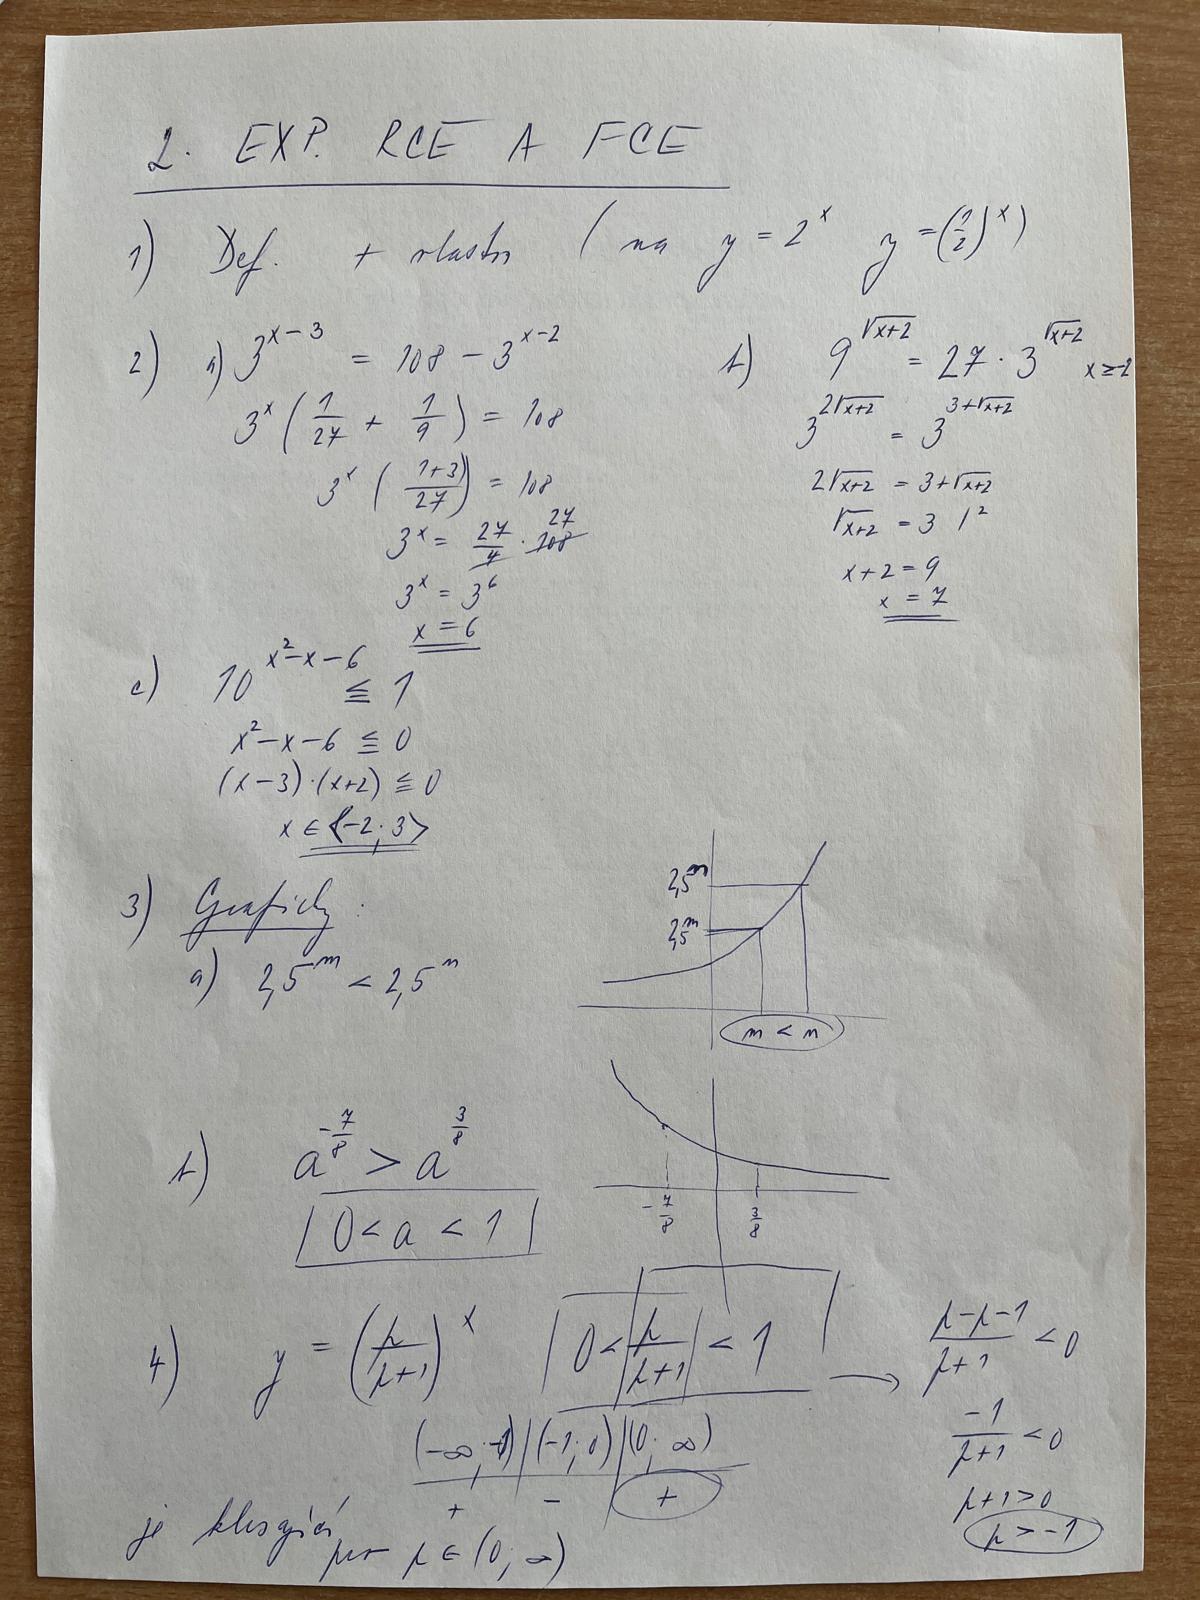 2. EXP. RCE A FCE
1) Def. + vlastn (na y = 2^x y = (1/2)^x)
2) a) 3^(x-3) = 108 - 3^(x-2)
3^x (1/27 + 1/9) = 108
3^x ((1+3)/27) = 108
3^x = 27/4 · 108 27
3^x = 3^6
x = 6
b) 9^√(x+2) = 27 · 3^√(x+2) x ≥ -2
3^(2√(x+2)) = 3^(3+√(x+2))
2√(x+2) = 3+√(x+2)
√(x+2) = 3 |²
x+2 = 9
x = 7
c) 10^(x²-x-6) ≦ 1
x²-x-6 ≦ 0
(x-3)·(x+2) ≦ 0
x ∈ ⟨-2; 3⟩
3) Graficky:
a) 2,5^m < 2,5^n
2,5^n
2,5^m
m < n
b) a^(-7/8) > a^(3/8)
0 < a < 1
-7/8 3/8
4) y = (p/(p+1))^x 0 < p/(p+1) < 1 → (p-p-1)/(p+1) < 0
-1/(p+1) < 0
p+1 > 0
p > -1
(-∞; -1) | (-1; 0) | (0; ∞)
+ - +
je klesající
pro p ∈ (0; ∞)